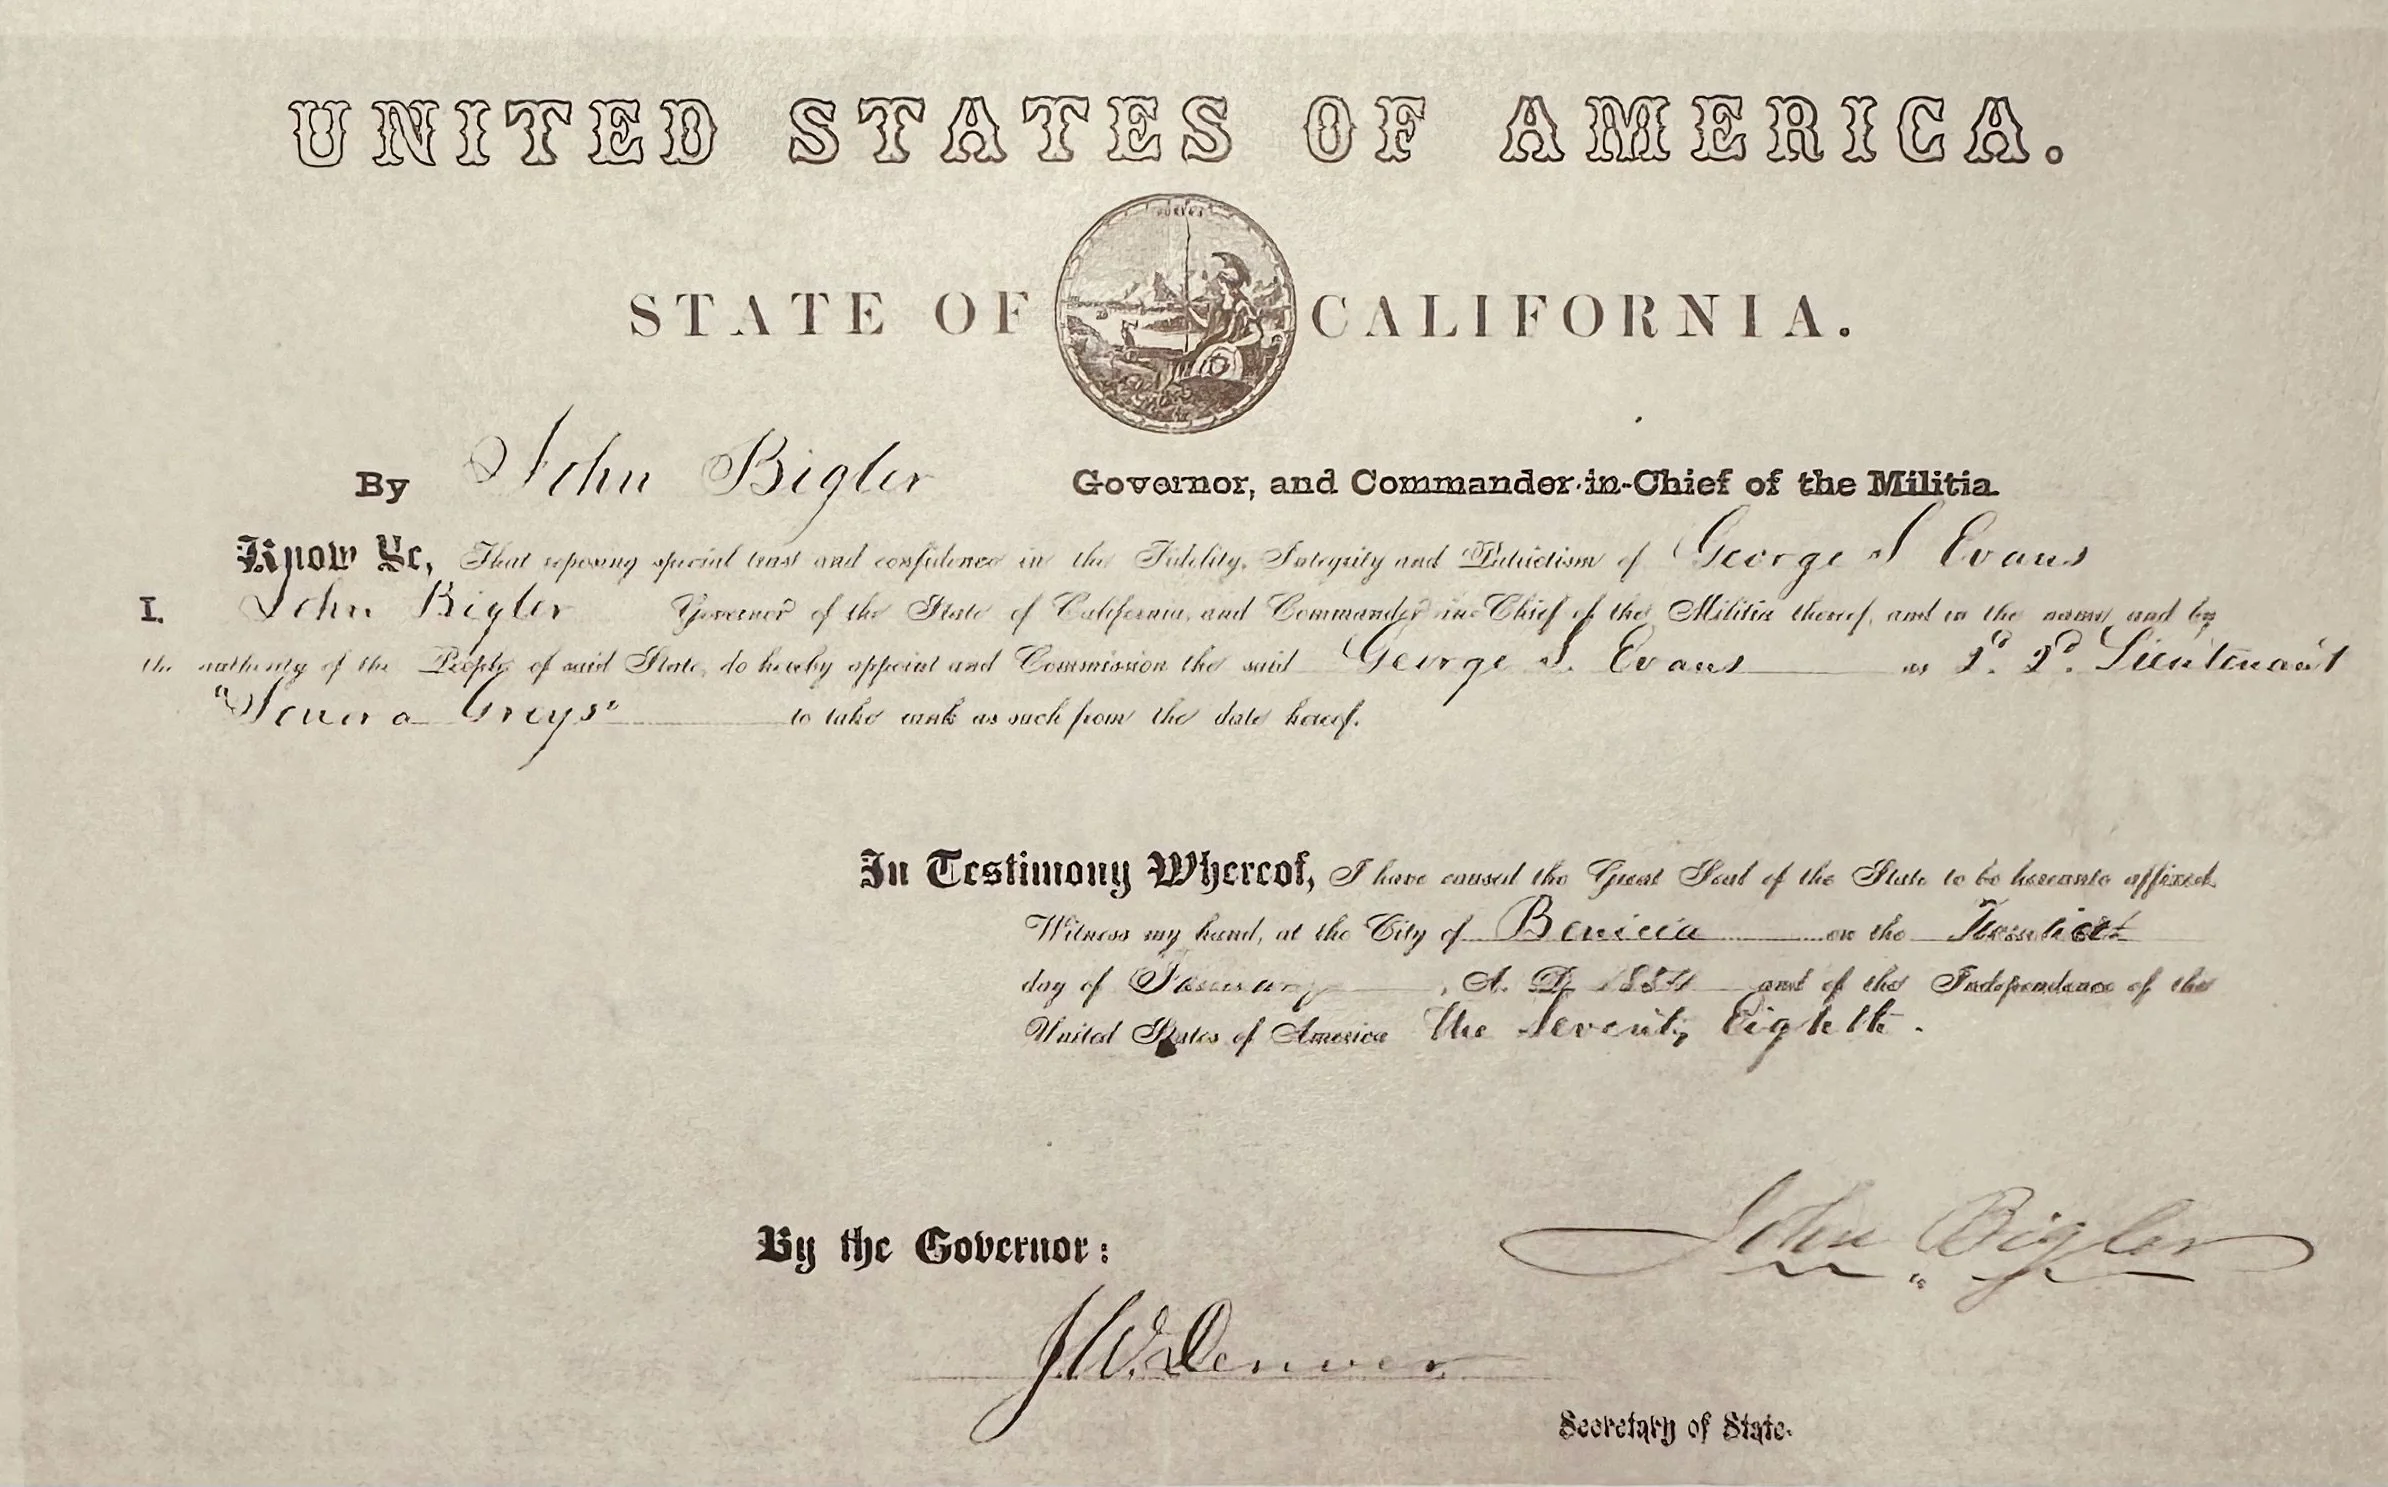 UNITED STATES OF AMERICA.
STATE OF CALIFORNIA.
By John Bigler Governor, and Commander-in-Chief of the Militia
Know Ye, That reposing special trust and confidence in the Fidelity, Integrity and Patriotism of George S Evans
I. John Bigler Governor of the State of California, and Commander in Chief of the Militia thereof, and in the name and by
the authority of the People of said State, do hereby appoint and Commission the said George S. Evans as Lieutenant
"Sonora Greys" to take rank as such from the date hereof.
In Testimony Whereof, I have caused the Great Seal of the State to be hereunto affixed
Witness my hand, at the City of Benicia on the
day of January, A. D. 1854 and of the Independence of the
United States of America the Seventy Eighth.
By the Governor:
John Bigler
J.W. Denver
Secretary of State.